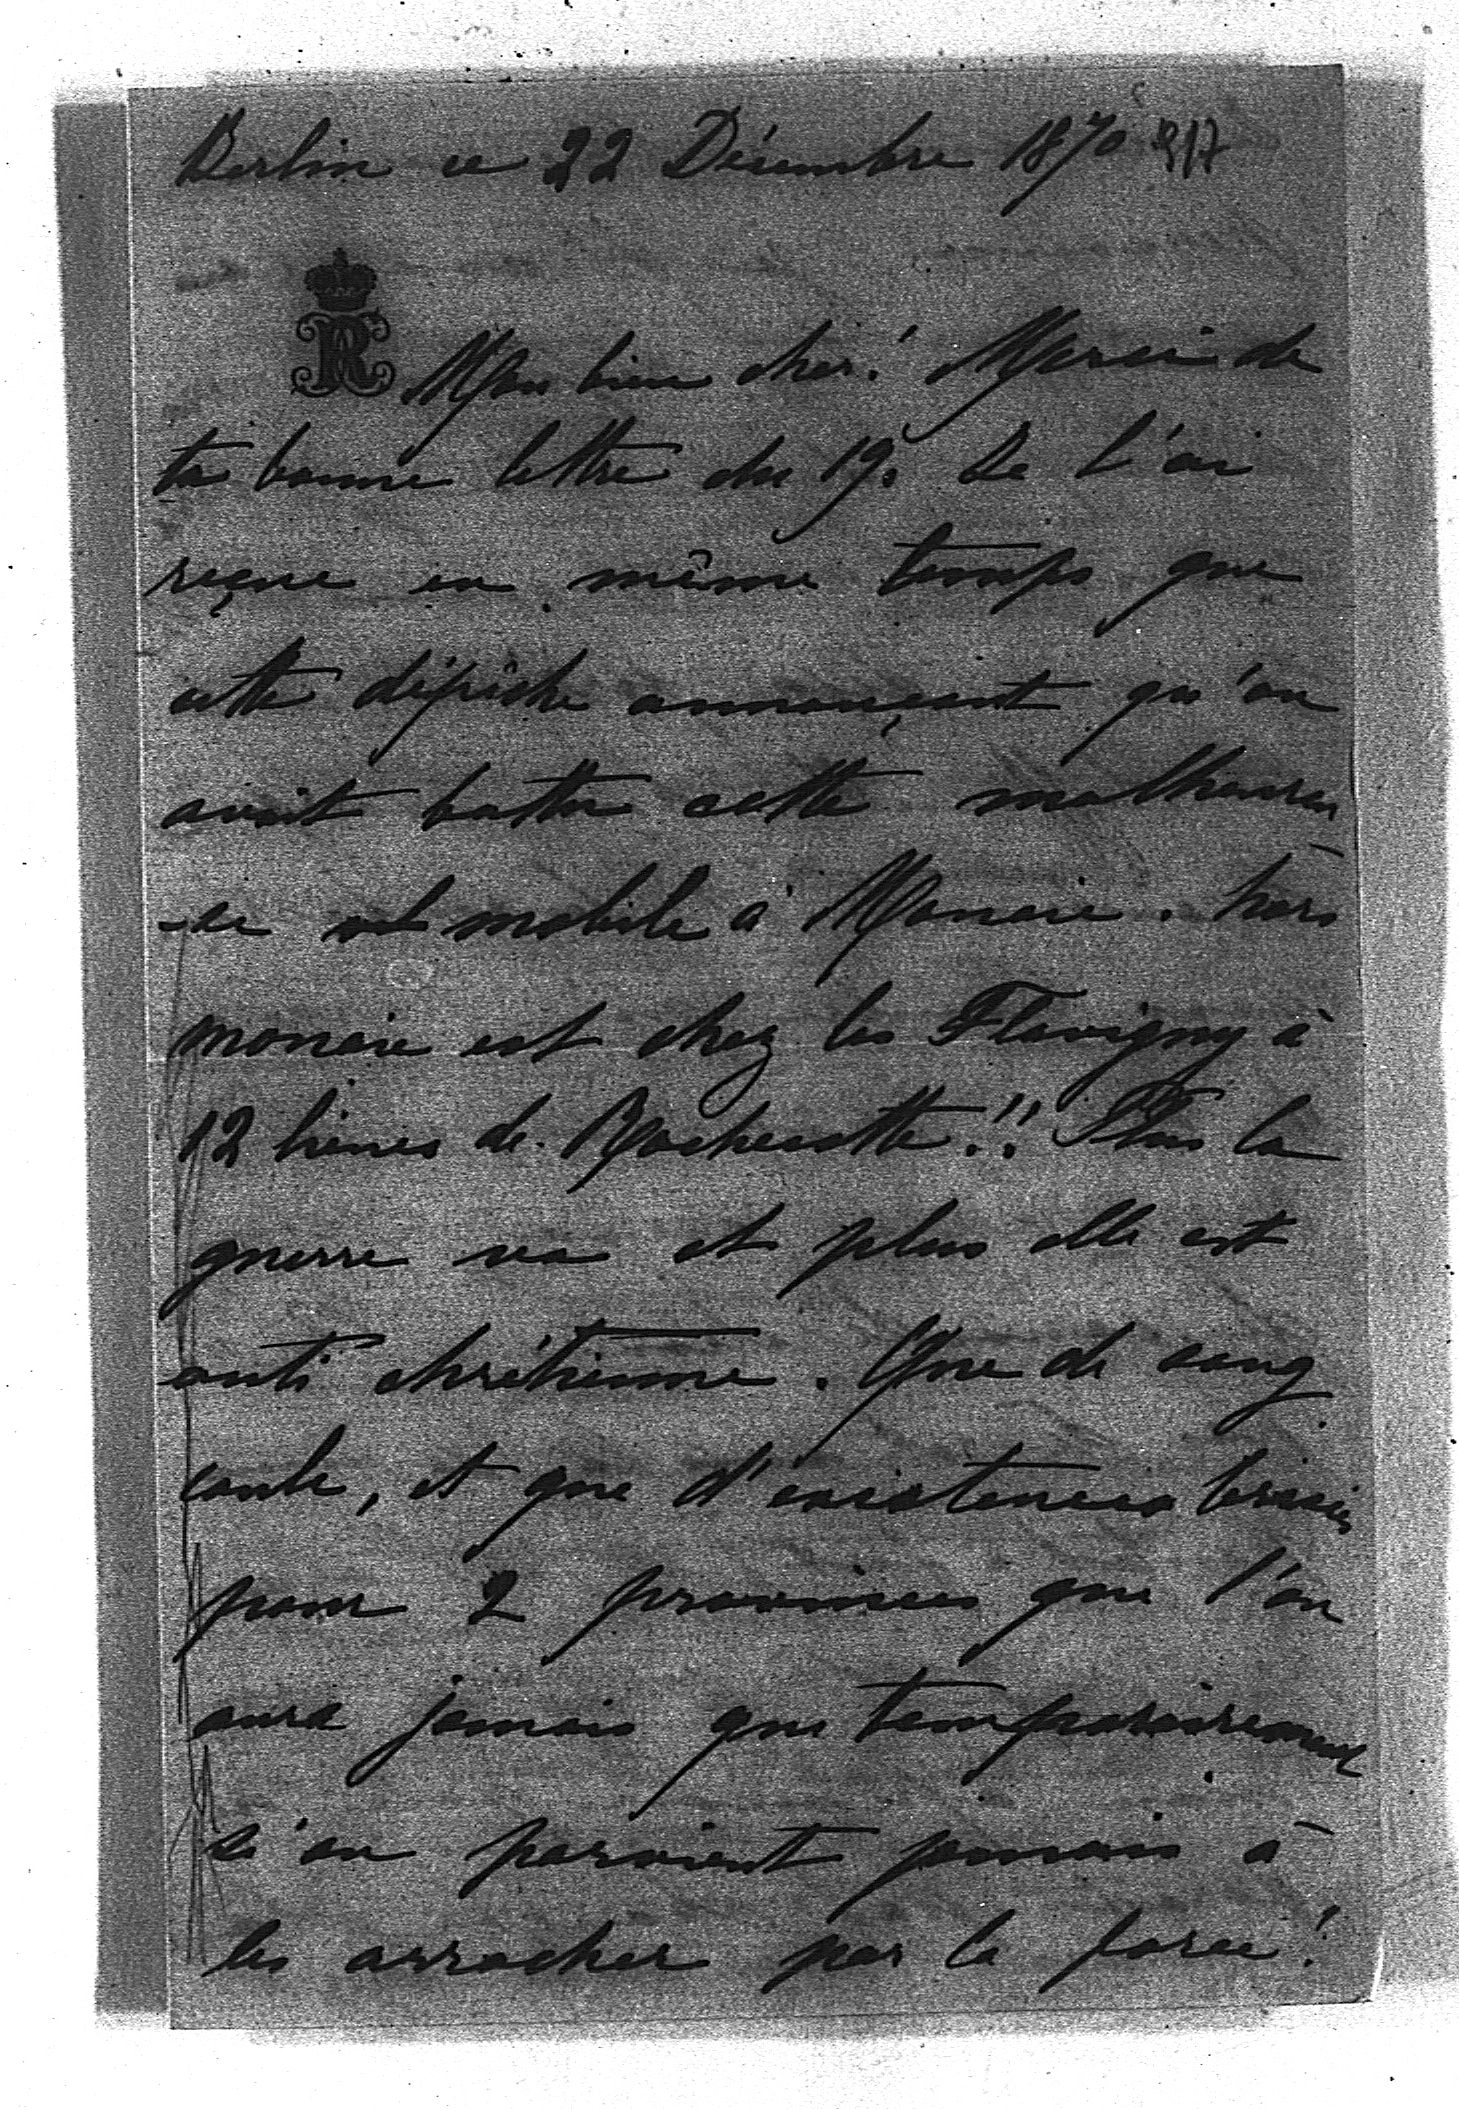 Berlin ce 22 Décembre 1870 217
Mon bien cher! Merci de
ta bonne lettre du 19. Je l'ai
reçue en même temps que
cette dépêche annonçant qu'on
avait battu cette malheureu
-se mobile à Monaie. hors
monaie est chez les Flavigny à
12 lieues de Rochecotte!! Plus la
guerre va et plus elle est
anti chrétienne. Que de sang
coule, et que d'existences brisées
pour 2 provinces que l'on
aura jamais que temporairement
si on parvient jamais à
les arracher par la force!